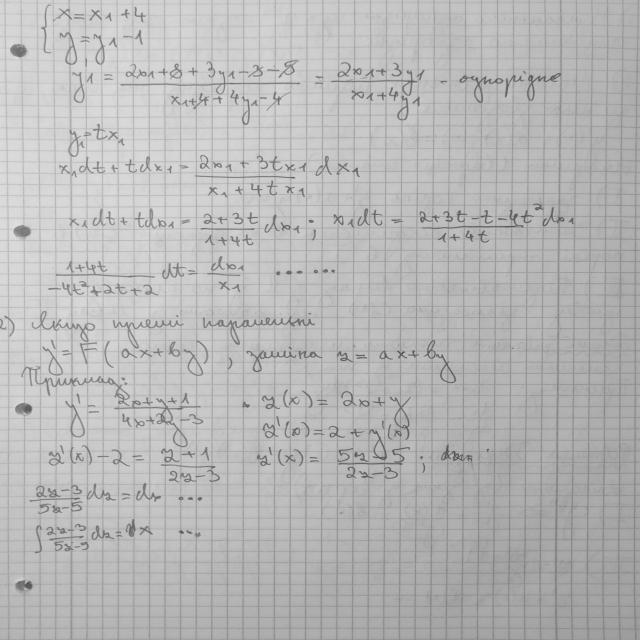 { x = x₁ + 4
y = y₁ - 1
y₁' = (2x₁ + 8 + 3y₁ - 3 - 5)/(x₁ + 4 + 4y₁ - 4) = (2x₁ + 3y₁)/(x₁ + 4y₁) - однорідне
y₁ = tx₁
x₁dt + tdx₁ = (2x₁ + 3tx₁)/(x₁ + 4tx₁) dx₁
x₁dt + tdx₁ = (2 + 3t)/(1 + 4t) dx₁ ; x₁dt = (2 + 3t - t - 4t²)/(1 + 4t) dx₁
(1 + 4t)/(-4t² + 2t + 2) dt = dx₁/x₁ ... ...
2) Якщо прямі паралельні
y' = F(ax + by), заміна z = ax + by
Приклад:
y' = (2x + y + 1)/(4x + 2y - 3) z(x) = 2x + y
z'(x) = 2 + y'(x)
z'(x) - 2 = (z + 1)/(2z - 3) z'(x) = (5z - 5)/(2z - 3) ;
(2z - 3)/(5z - 5) dz = dx ...
∫ (2z - 3)/(5z - 5) dz = dx ...